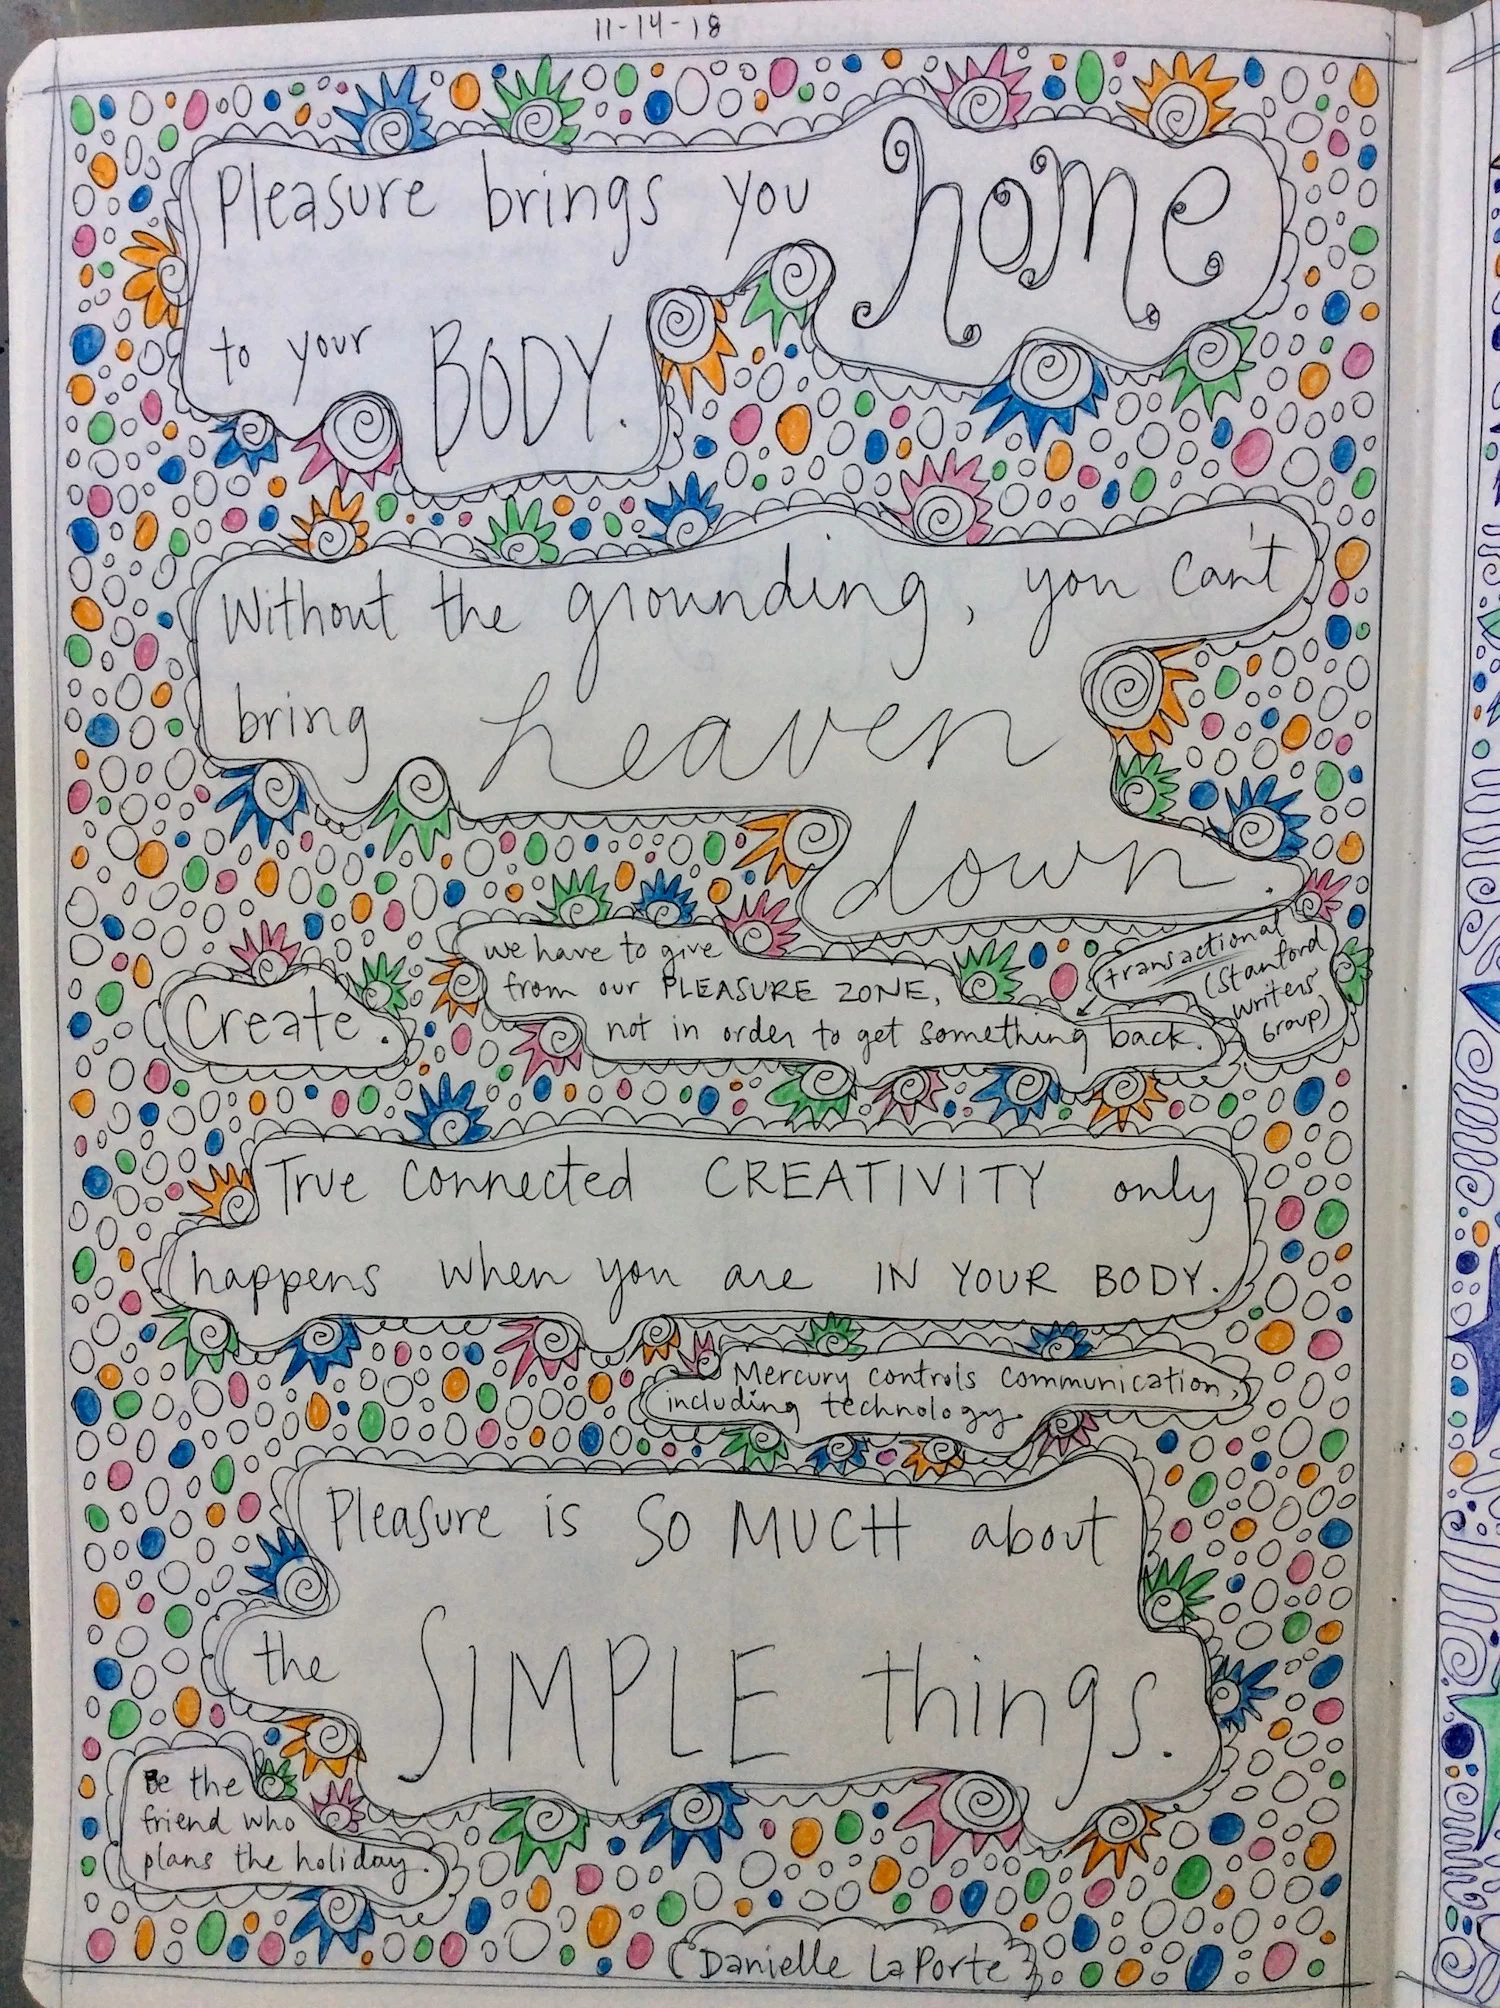 11-14-18
Pleasure brings you home
to your BODY.
Without the grounding, you can't
bring heaven
down.
Create.
we have to give
from our PLEASURE ZONE,
not in order to get something back.
transactional
(Stanford
writers'
group)
True connected CREATIVITY only
happens when you are IN YOUR BODY.
Mercury controls communication,
including technology.
Pleasure is SO MUCH about
the SIMPLE things.
Be the
friend who
plans the holiday.
(Danielle LaPorte)